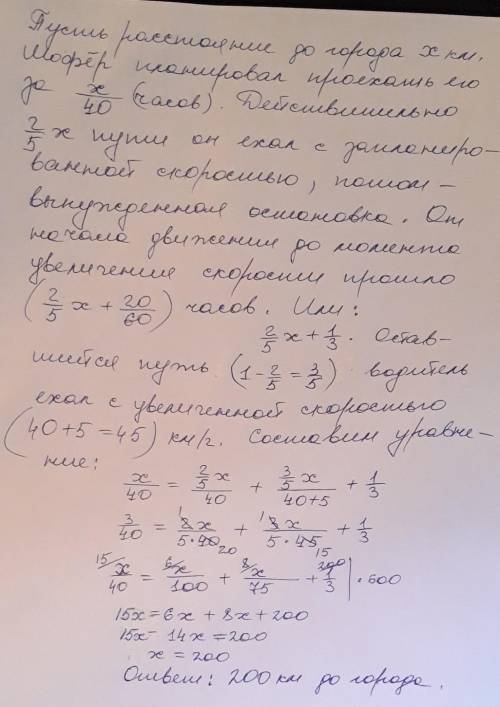 Пусть расстояние до города x км.
Шофёр планировал проехать его
за x/40 (часов). Действительно
2/5 x пути он ехал с запланиро-
ванной скоростью, потом -
вынужденная остановка. От
начала движения до момента
увеличения скорости прошло
(2/5 x + 20/60) часов. Или:
2/5 x + 1/3. Остав-
шийся путь (1 - 2/5 = 3/5) водитель
ехал с увеличенной скоростью
(40+5 = 45) км/г. Составим уравне-
ние:
x/40 = 2/5 x/40 + 3/5 x/40+5 + 1/3
3/40 = 1 2x/5·40 20 + 1 3x/5·45 15 + 1/3
15/ x/40 = 6/ x/100 + 8/ x/75 + 200/ 1/3 | · 600
15x = 6x + 8x + 200
15x - 14x = 200
x = 200
Ответ: 200 км до города.